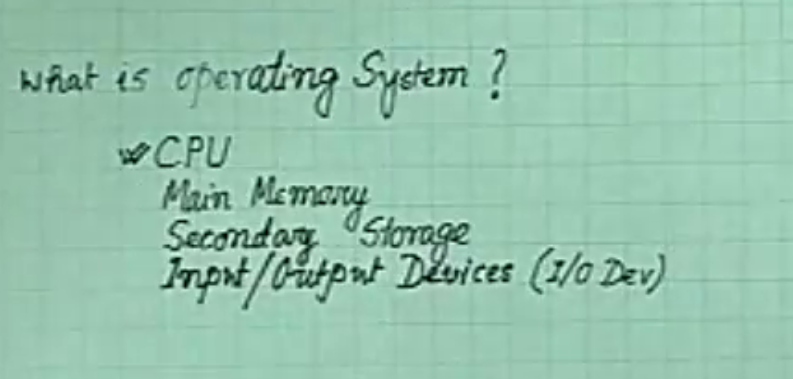 What is operating System ?
CPU
Main Memory
Secondary Storage
Input/Output Devices (I/O Dev)